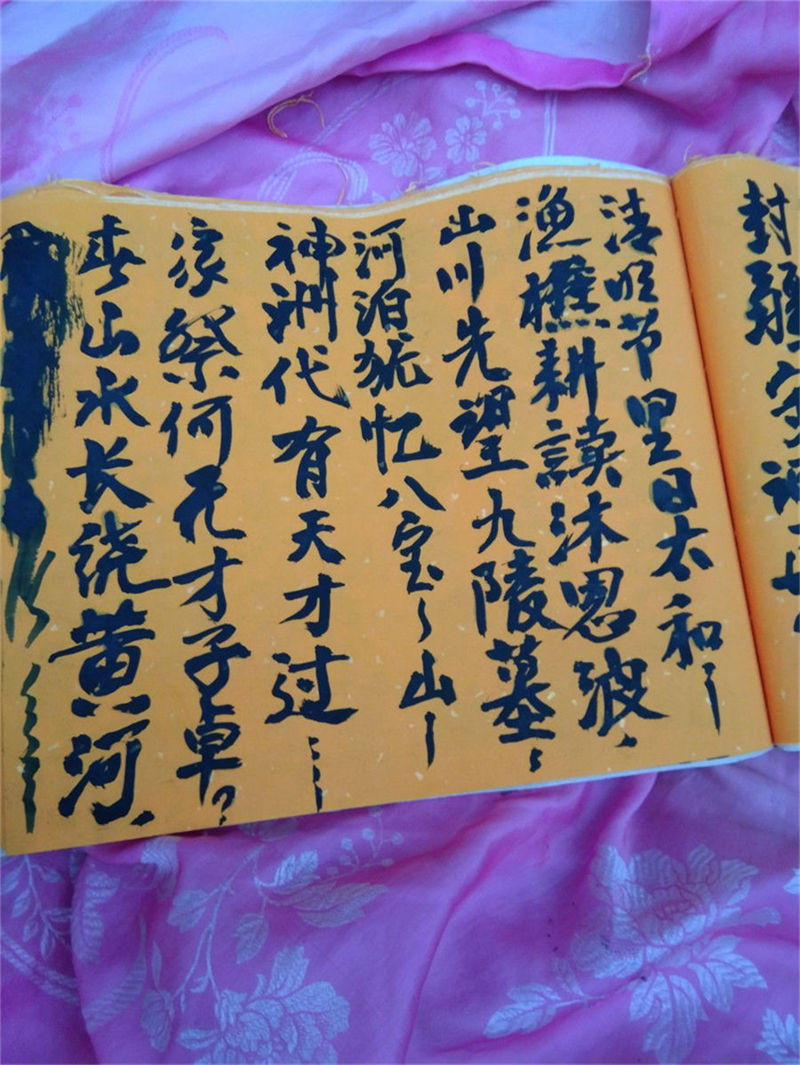 封疆守
清明节里日太和
渔樵耕读沐恩波
山川先望九陵墓
河泊犹忆八宝山
神洲代有天才过
家祭何无才子卓?
春山水长绕黄河